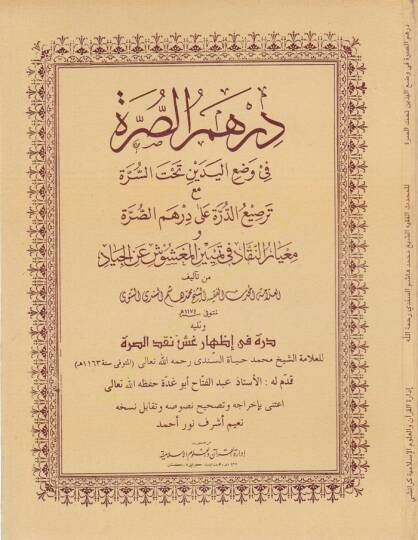 درهم الصُّرَّة
في وضع اليدين تحت السُّرَّة
مع
ترصيع الدُّرّة على درهم الصُّرّة
و
معيار النقاد في تمييز المغشوش عن الجياد
من تأليف
العلامة المحدث الفقيه الشيخ محمد هاشم السندي التتوي
متوفى سنة ١١٧٤هـ
ويليه
درة في إظهار غش نقد الصرة
للعلامة الشيخ محمد حياة السندى رحمه الله تعالى (المتوفى سنة ١١٦٣هـ)
قدّم له : الأستاذ عبد الفتاح أبو غدة حفظه الله تعالى
اعتنى بإخراجه وتصحيح نصوصه وتقابل نسخه
نعيم أشرف نور أحمد
إدارة القرآن والعلوم الإسلامية
درهم الصرة في وضع اليدين تحت السرة
للمحدث الفقيه الشيخ محمد هاشم السندى رحمه الله
إدارة القرآن والعلوم الإسلامية كراتشي